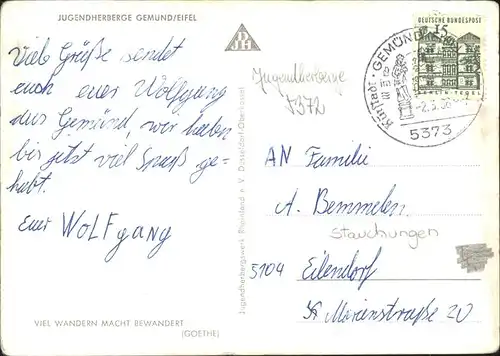 JUGENDHERBERGE GEMÜND/EIFEL
Viele Grüße sendet
euch euer Wolfgang
aus Gemünd, wir haben
bis jetzt viel Spaß ge-
habt.
Euer WOLFgang
VIEL WANDERN MACHT BEWANDERT
(GOETHE)
Jugendherbergswerk Rheinland e. V. Düsseldorf-Oberkassel
DJH
Jugendherberge
5372
DEUTSCHE BUNDESPOST
15
BERLIN-TEGEL
GEMÜND
5373
AN Familie
A. Bemmelen
Stauchungen
5104 Eilendorf
Marienstraße 20